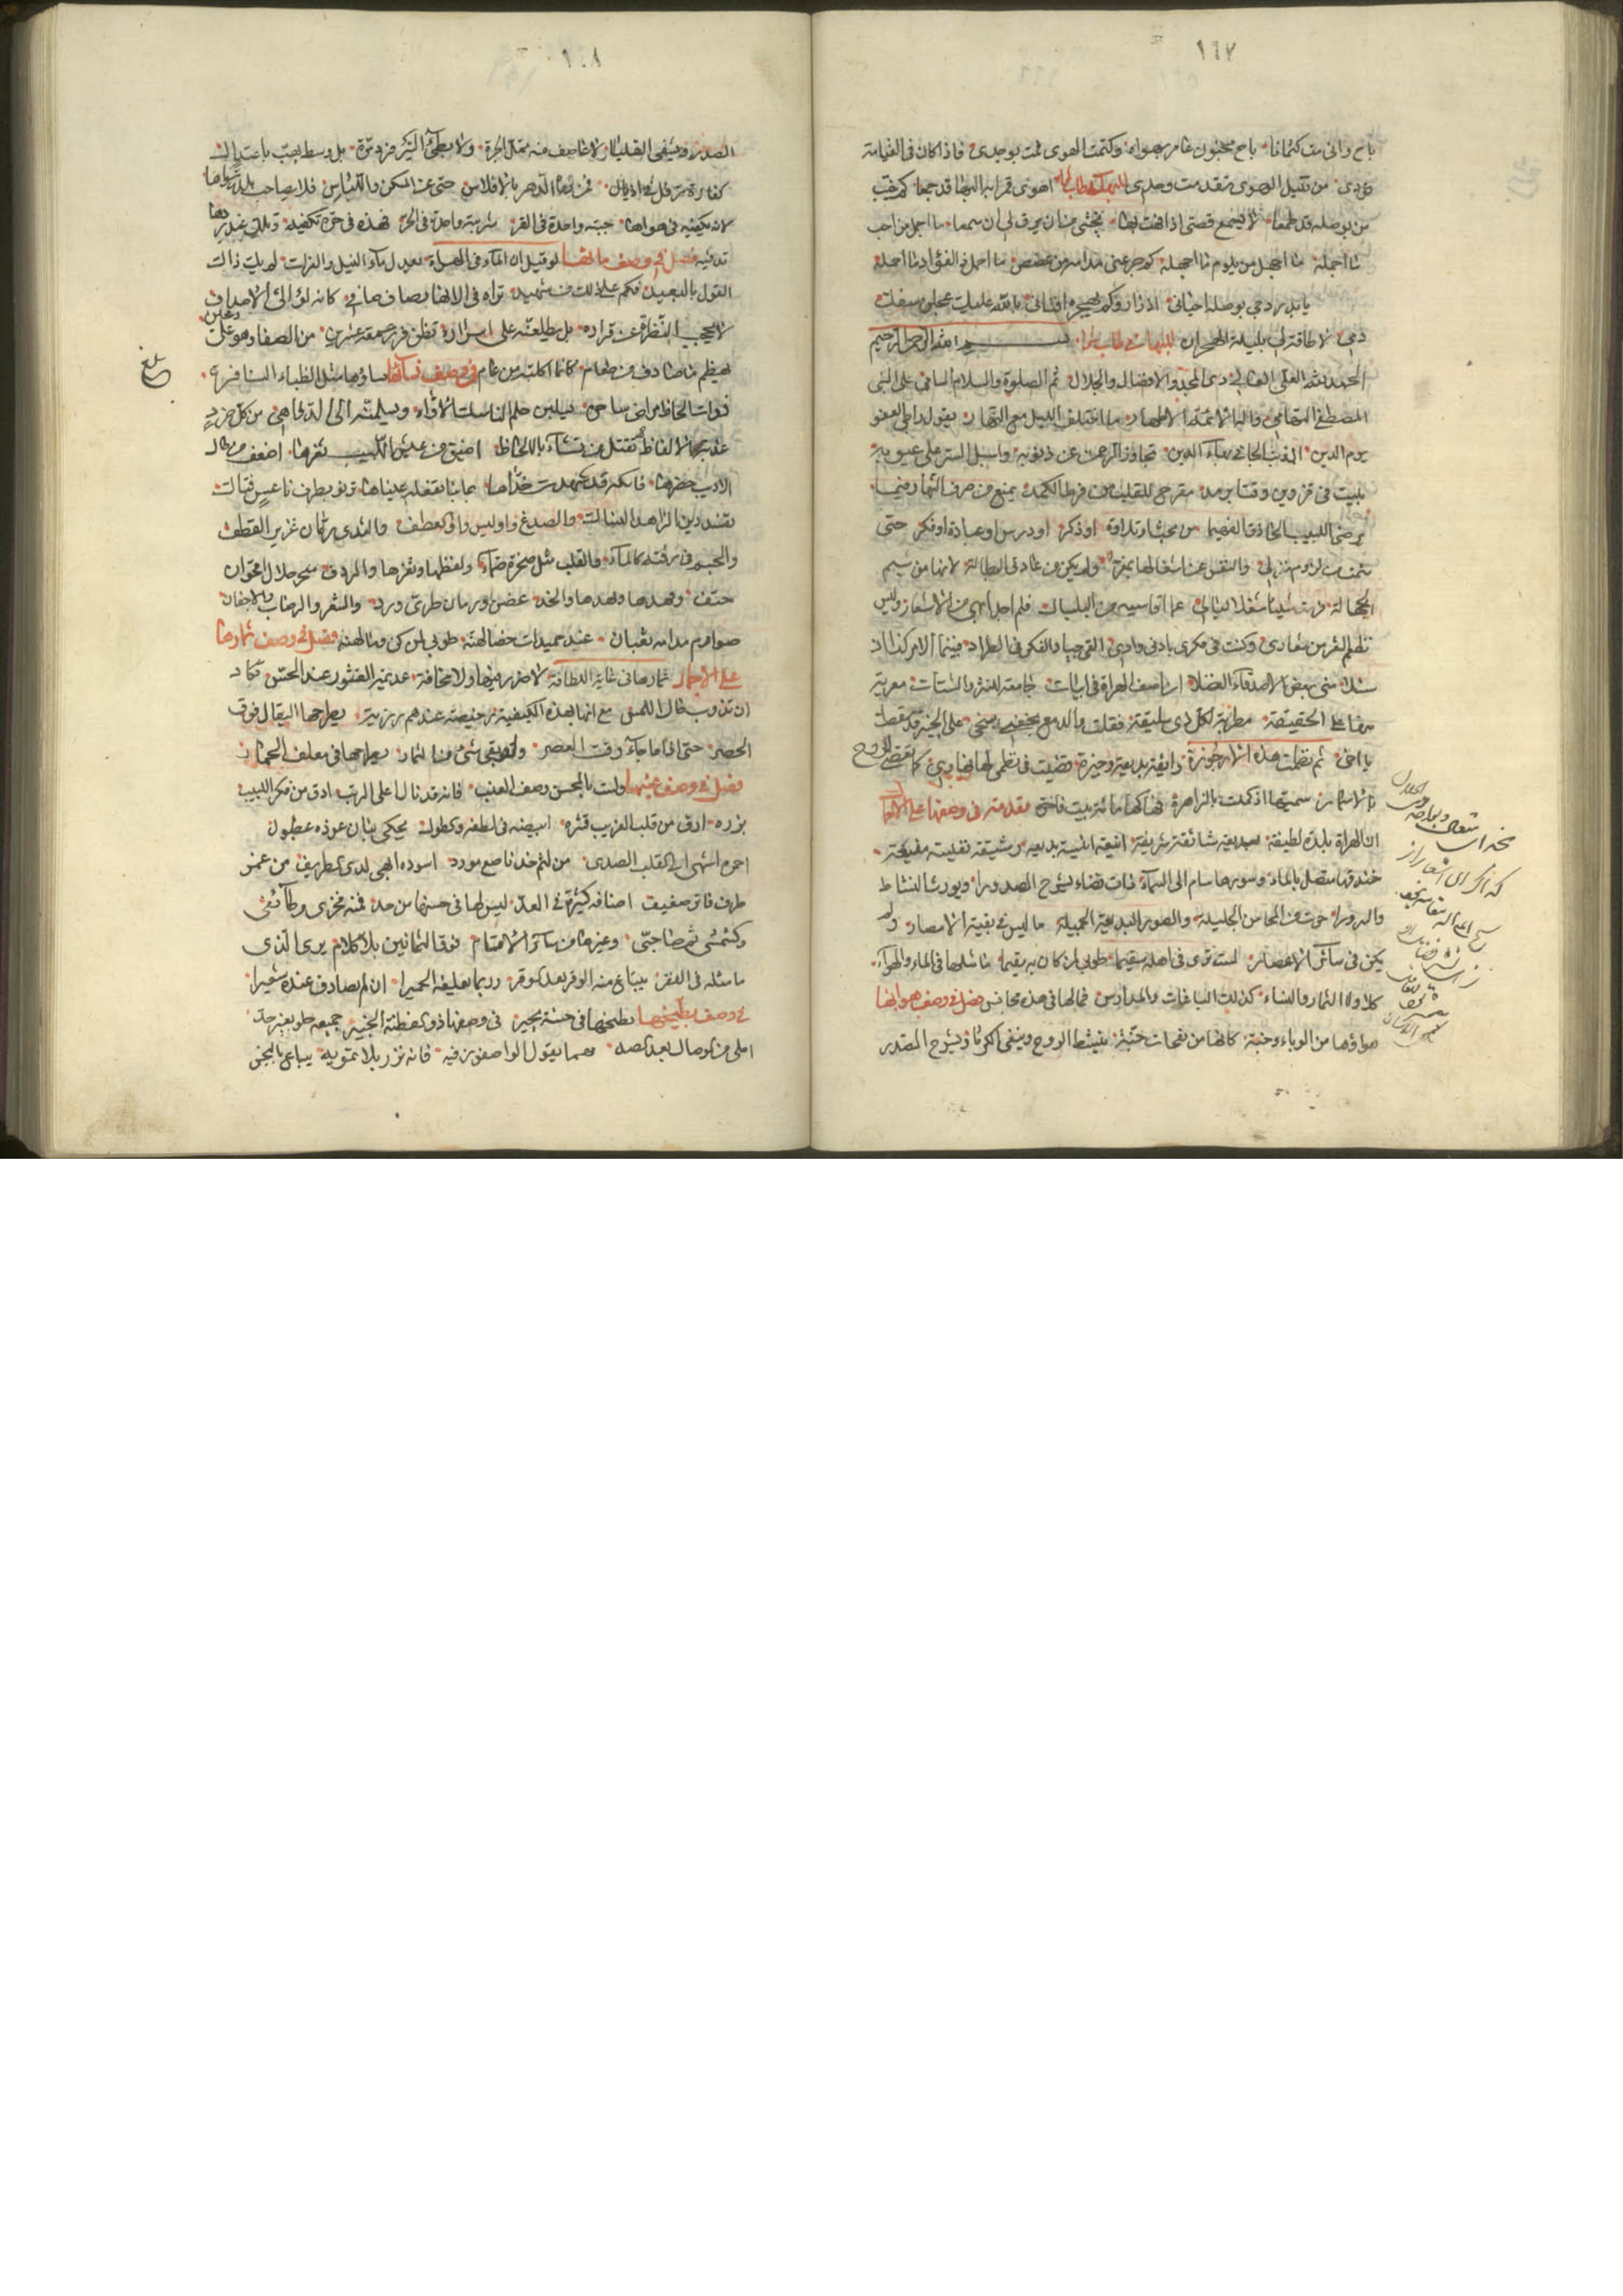 ١٦٧
باح واني مت كتمانا باح مجنون عامر بهواه وكتمت الهوى فمت بوجدي فاذا كان في القيامة
نودي من قتيل الهوى تقدمت وحدي
من بوصله قد طمعا لا يسمع قصتي اذا فهت بها يخشى من ان يرق لي ان سمعا ما اجمل من احب
ما اجمله ما اجهل من يلوم ما اجهله كم جرعني مدامة من غصص ما احمل ذا الفؤاد ما احمله
يا بدر دجى بوصله احياني اذ زار وكم بهجره افناني بالله عليك عجلن سفك
دمي لا طاقة لي بليلة الهجران بسم الله الرحمن الرحيم
الحمد لله العلي العالي ذي المجد والافضال والجلال ثم الصلوة والسلام السامي على النبي
المصطفى التهامي واله الائمة الاطهار ما اختلف الليل مع النهار يقول راجي العفو
يوم الدين المذنب الجاني بهاء الدين تجاوز الرحمن عن ذنوبه واسبل الستر على عيوبه
بليت في قزوين وقتا برمد مقرح للقلب من فرط الكمد يمنع من صرف النهار فيما
يرضى اللبيب الحاذق الفهيما من بحث او تلاوة او ذكر او درس او عبادة او فكر حتى
سئمت من لزوم منزلي والنفس عن اشغالها بمعزل ولم يكن من عادتي البطالة لانها من شيم
الجهالة فرمت شيئا شغلا لبالي عما اقاسيه من البلبال فلم اجد ابهى من الاشعار وليس
نظم الشعر من شعاري وكنت في فكري باد في وادي القي جيادا لفكر في الطراد فبينما الامر كذا اذ
سئلا مني بعض الاصدقاء الفضلا ان اصف الهراة في ابيات جامعة للنثر والشتات معربة
عنها على الحقيقة مطربة لكل ذي سليقة فقلت والدمع بجفني سخي على الخبير قد سقطت
يا اخي ثم نظمت هذه الارجوزة رائقة بديعة وجيزة قضيت في نظمي لها نهاري كما تقضى الروح
بالاسمار سميتها اذ كملت بالزاهرة فهاكها مائة بيت فاخرة مقدمة في وصفها على الاجمال
ان الهراة بلدة لطيفة بديعة شائقة شريفة انيقة انيسة بديعه رشيقة نفيسة منيعة
خندقها متصل بالماء وسورها سام الى السماء ذات فضاء يشرح الصدورا ويورث النشاط
والسرورا حوت من المحاسن الجليلة والصور البديعة الجميلة ما ليس في بقية الامصار ولم
يكن في سائر الاعصار لست ترى في اهلها سقيما طوبى لمن كان بها مقيما ما مثلها في الماء والهواء
كلا ولا الثمار والنساء كذلك الباغات والمدارس فما لها في هذه مجانس فصل في وصف هوائها
هواؤها من الوباء وجنة كانها من نفحات جنة ينشط الروح وينفي الكربا ويشرح الصدر
١٦٨
الصدر ويشفي القلبا لا عاصف منه تمل الحرة ولا بطيئ السير فرد مرة بل وسط يهب باعتدال
كغادة ترفل في اذيال فمن رماه الدهر بالافلاس حتى عن المسكن واللباس فلا يصاحب بلدة سواها
لانه يكفيه في هواها جبة واحدة في القر شربة واحدة في الحر فهذه في حره تكفيه وتلك عند بردها
تدفيه فصل في وصف مائها لو قيل ان الماء في الهراة يعدل ماء النيل والفرات لم يك ذاك
القول بالبعيد فكم على ذلك من شهيد تراه في الانهار صاف صافي كانه لؤلؤ الاصداف
لا يحجب النظرة عن قراره بل يطلعنه على اسراره تظن غور عمقه شبرين من الصفا وهو على رمحين
يهضم ما صادف من طعام كانما اكلته من عام في وصف نسائها نساؤها مثل الظباء النافرة
ذوات الحاظ مراض ساحرة يسلبن حلم الناسك الاواه ويسلمنه الى الدواهي من كل خود
عذبة الالفاظ تقتل من تشاء بالالحاظ اضيق من عيش اللبيب ثغرها اضعف من حال
الاديب خصرها فاتكة قد شهدت خداها بما بنا تفعله عيناها ترنو بطرف ناعس فتاك
تفسد دين الزاهد النساك والصدغ واو ليس واو العطف والثدي رمان عزيز القطف
والجسم في رقته كالماء والقلب مثل صخرة صماء ولفظها وثغرها والردف سحر حلال اقحوان
حقف وقدها ونهدها والخد غصن ورمان طري ورد والشعر والرضاب والاجفان
صوارم مدامة ثعبان عند حميدات خصالهنه طوبى لمن كن وصالهنه فصل في وصف ثمارها
على الاجمال ثمارها في غاية اللطافة لا ضرر فيها ولا مخافة عديمة القشور عند الحس تكاد
ان تذوب حال اللمس مع انها بهذه الكيفية رخيصة عندهم رزية يطرحها البقال فوق
الحصر حتى اذا ما جاء وقت العصر ولقد بقي شيء من الثمار يطرحها في معلف الحمار
فصل في وصف عنبها ولست بالمحسن وصف العنب فانه قد نال اعلى الرتب ادق من فكر اللبيب
بزره ارق من قلب الغريب قشره ابيضه في لطفه وكطوله يحكي بنان غادة عطبول
احمره اشهى الى القلب الصدي من لثم خد ناصع مورد اسوده ابهى لدى الظريف من غمز
طرف فاتر ضعيف اصنافه كثيرة في العد ليس لها في حسنها من حد فمنه فخري وطائفي
وكشمشي ثم صاحبي وغيرها من سائر الاقسام فوق الثمانين بلا كلام يرى الذي
ما مثله في الفقر يبتاع منه الوقر بعد الوقر وربما يعلفه الحميرا ان لم يصادف عنده شعيرا
في وصف بطيخها بطيخها في حسنه يحير في وصفها ذو الفطنة الخبير جميعه حلو بغير حد
احلى من الوصال بعد الصد مهما يقول الواصفون فيه فانه نزر بلا تمويه يباع بالبخس
بلغ